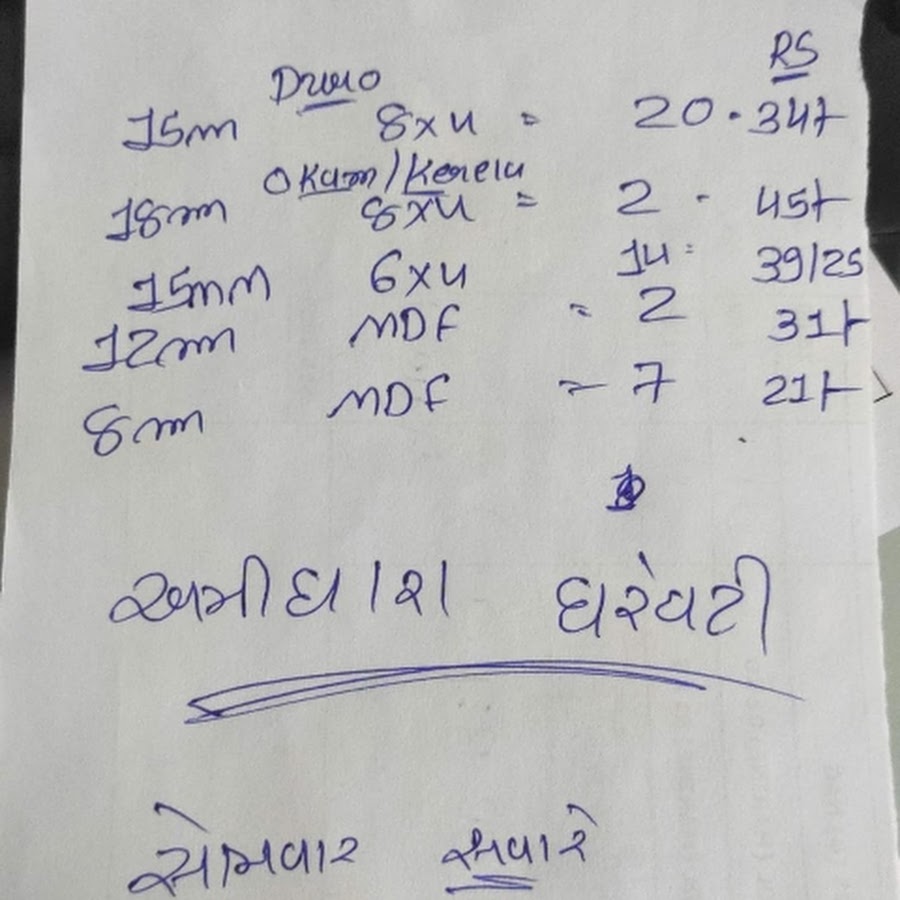 RS
Duro
15mm 8x4 = 20 . 34/-
Okum/Kerela
18mm 8x4 = 2 - 45/-
15mm 6x4 14 = 39/25
12mm MDF = 2 31/-
8mm MDF = 7 21/-
અમીધારા ધરેવટી
સોમવાર સવારે